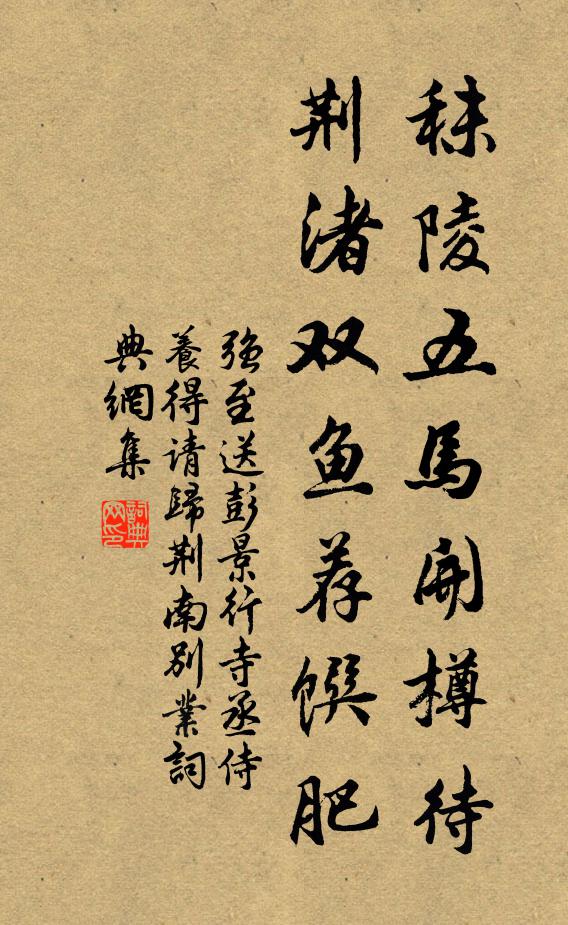 秣陵五馬開樽待
荆渚双鱼荐馔肥
强至送彭景行寺丞侍
養得请歸荆南别業詞
典網集
詞典網印